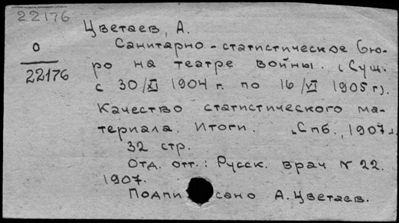 22176
Цветаев, А.
О
22176
Санитарно-статистическое бю-
ро на театре войны. (Сущ.
с 30/XI 1904 г. по 16/VI 1905 г).
Качество статистического ма-
териала. Итоги. Спб., 1907.
32 стр.
Отд. отт.: Русск. врач № 22.
1907.
Подписано А. Цветаев.